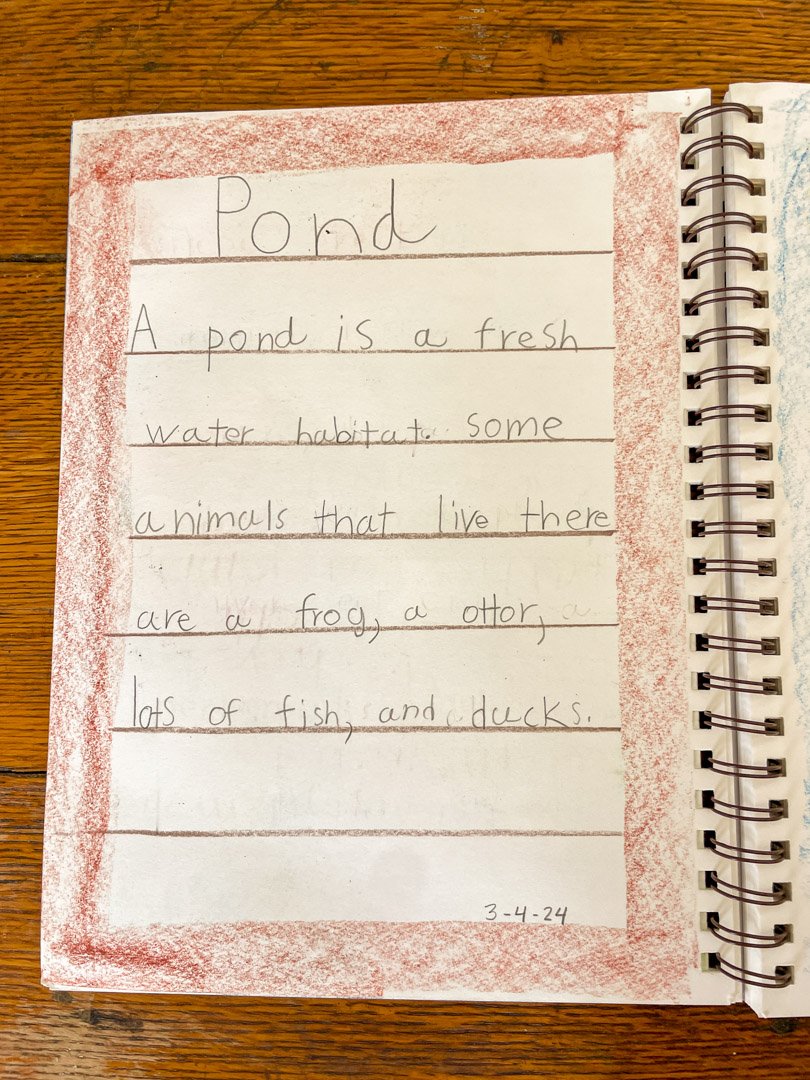 Pond
A pond is a fresh
water habitat. some
animals that live there
are a frog, a ottor,
lots of fish, and ducks.
3-4-24